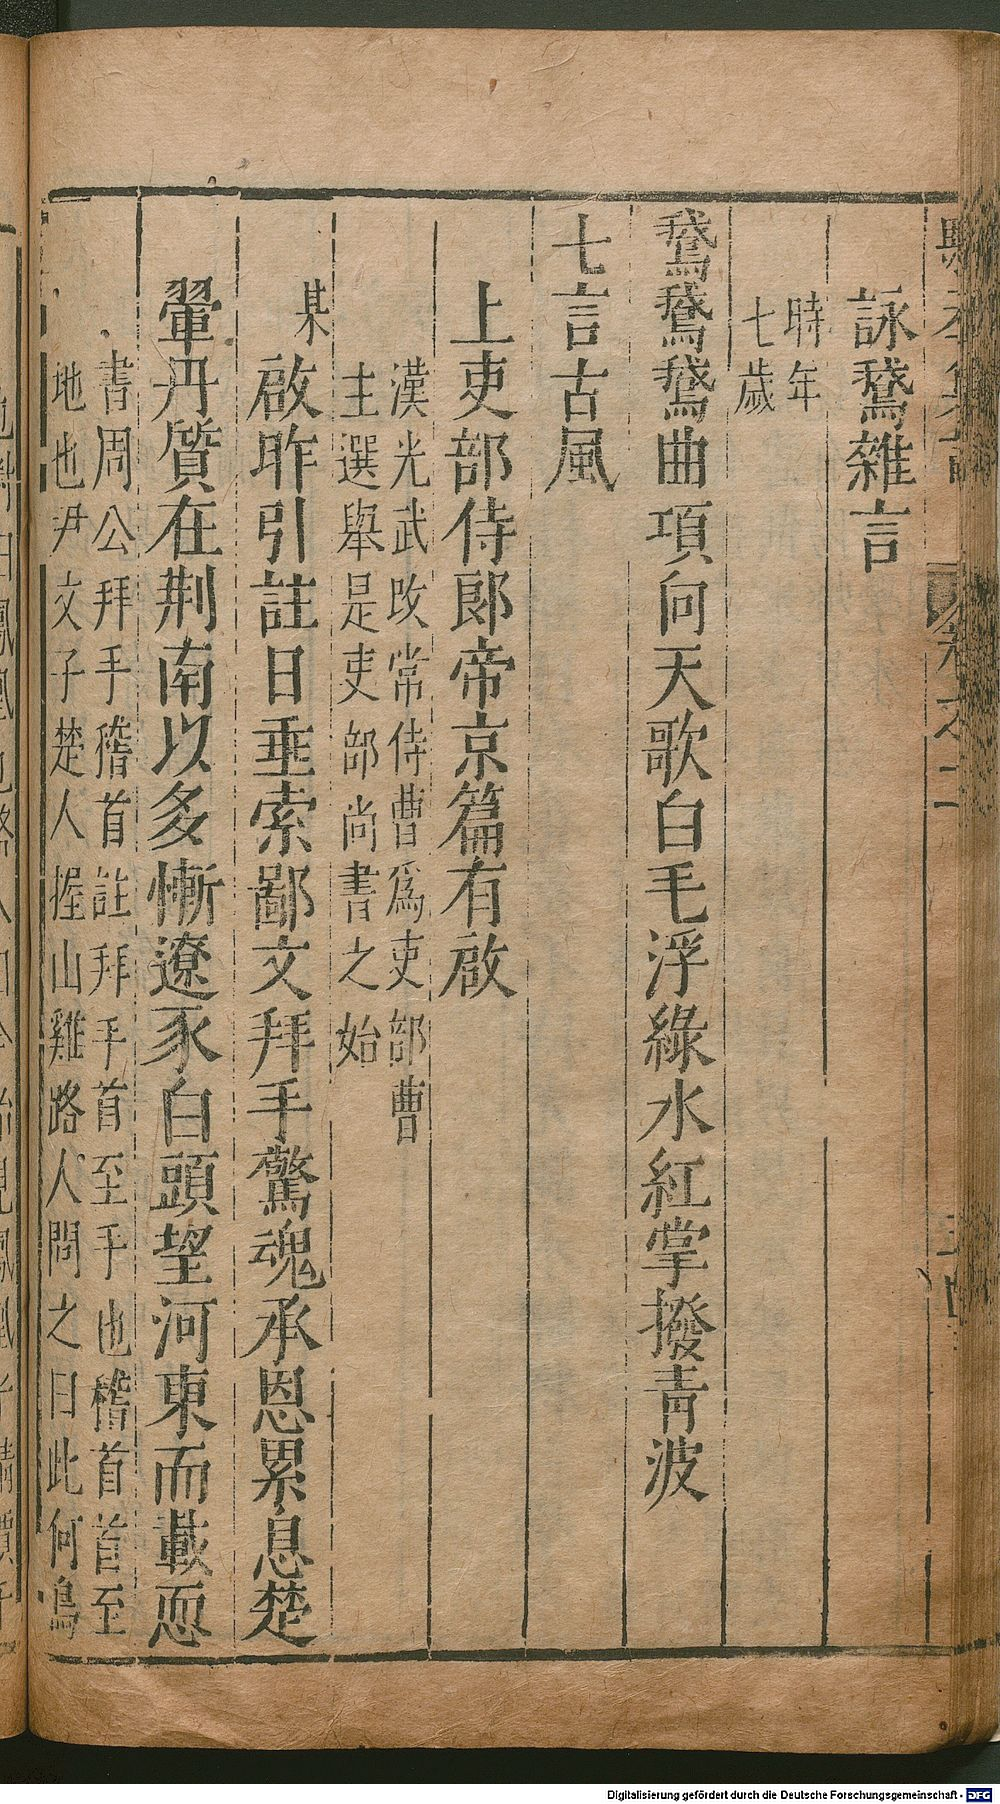 詠鵞雜言
時年
七歲
鵞鵞鵞曲項向天歌白毛浮綠水紅掌撥青波
七言古風
上吏部侍郎帝京篇有啟
漢光武改常侍曹爲吏部曹
主選舉是吏部尚書之始
某啟昨引註日垂索鄙文拜手驚魂承恩累息楚
翬丹質在荆南以多慚遼豕白頭望河東而載恧
書周公拜手稽首註拜手首至手也稽首首至
地也尹文子楚人握山雞路人問之曰此何鳥
Digitalisierung gefördert durch die Deutsche Forschungsgemeinschaft - DFG